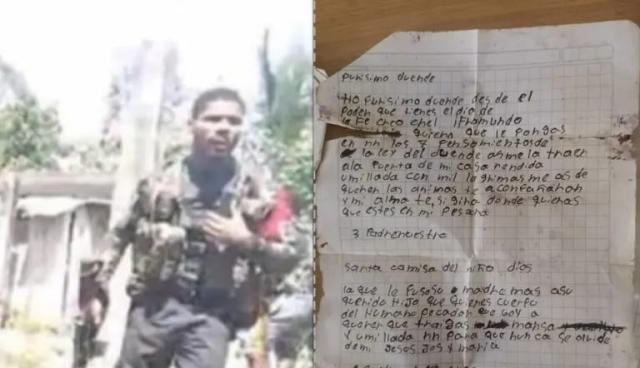 purisimo duende
Ho purisimo duende desde el
Poder que tienes el dia de
la Fe creo en el
quiero que le pongas
en nn las 7 pensamientos de
la ley del duende asmela traer
ala puerta de mi casa rendida
umillada con mil legrimas me as de
querer las animas te aconpañaran
y mi alma te sigira donde quieras
que estes en mi pesara
3 Padrenuestro
santa camisa del niño dios
la que le puso madre mas a su
querido Hijo que quieres cuerpo
del Humano Pecador que boy a
querer que traigas mansa
y umillada nn para que nunca se olvide
de mi Jesus Jos y maria